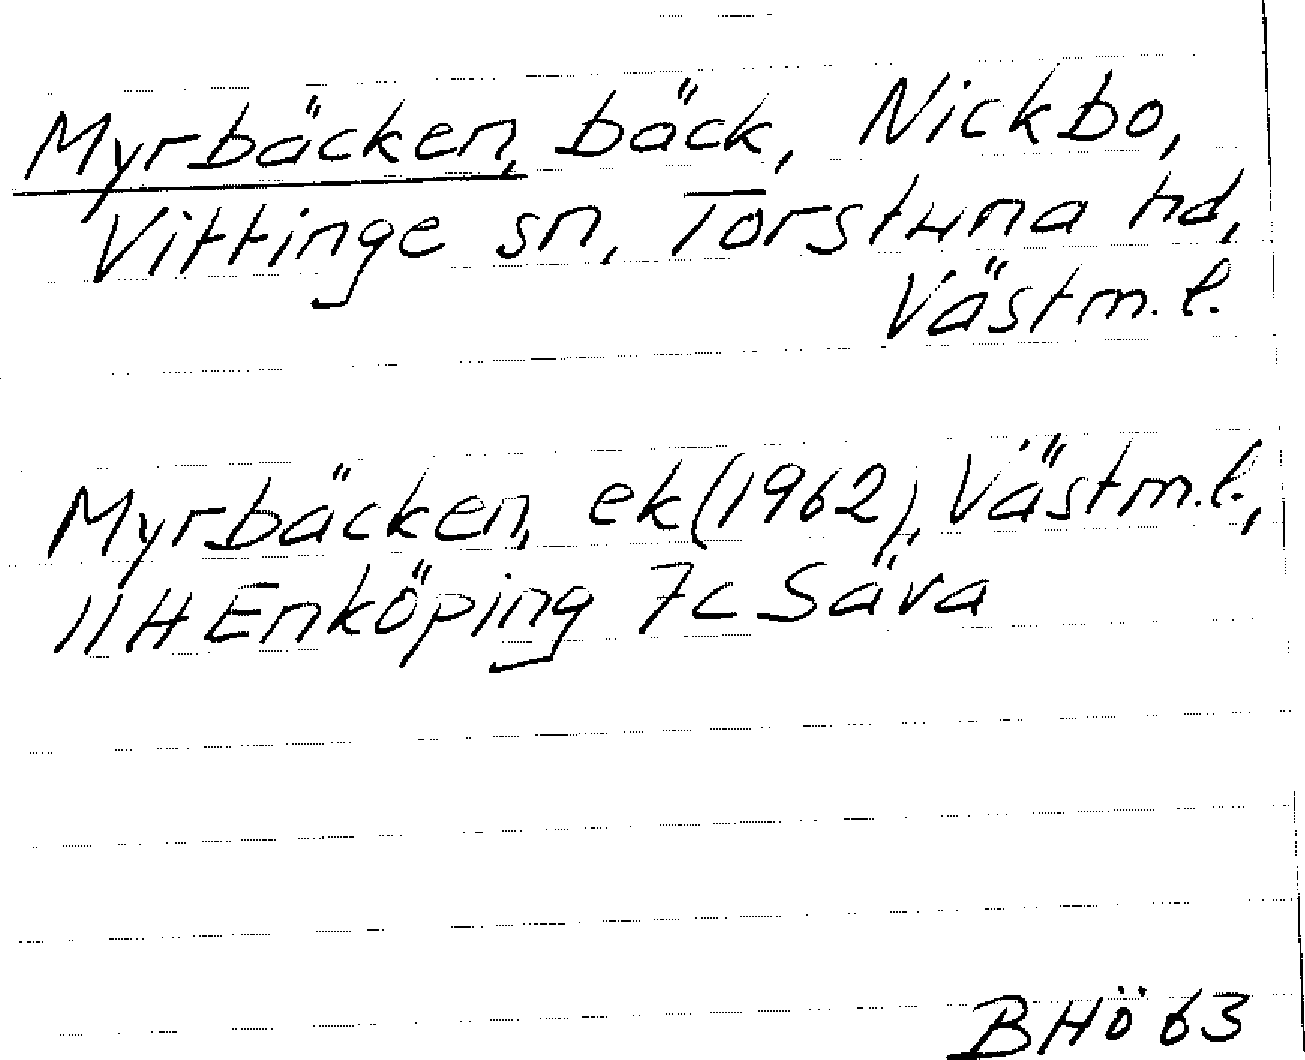 Myrbäcken, bäck, Nickbo,
Vittinge sn, Torstuna hd,
Västm.l.
Myrbäcken, ek (1962), Västm.l.,
11H Enköping 7c Säva
BHö 63